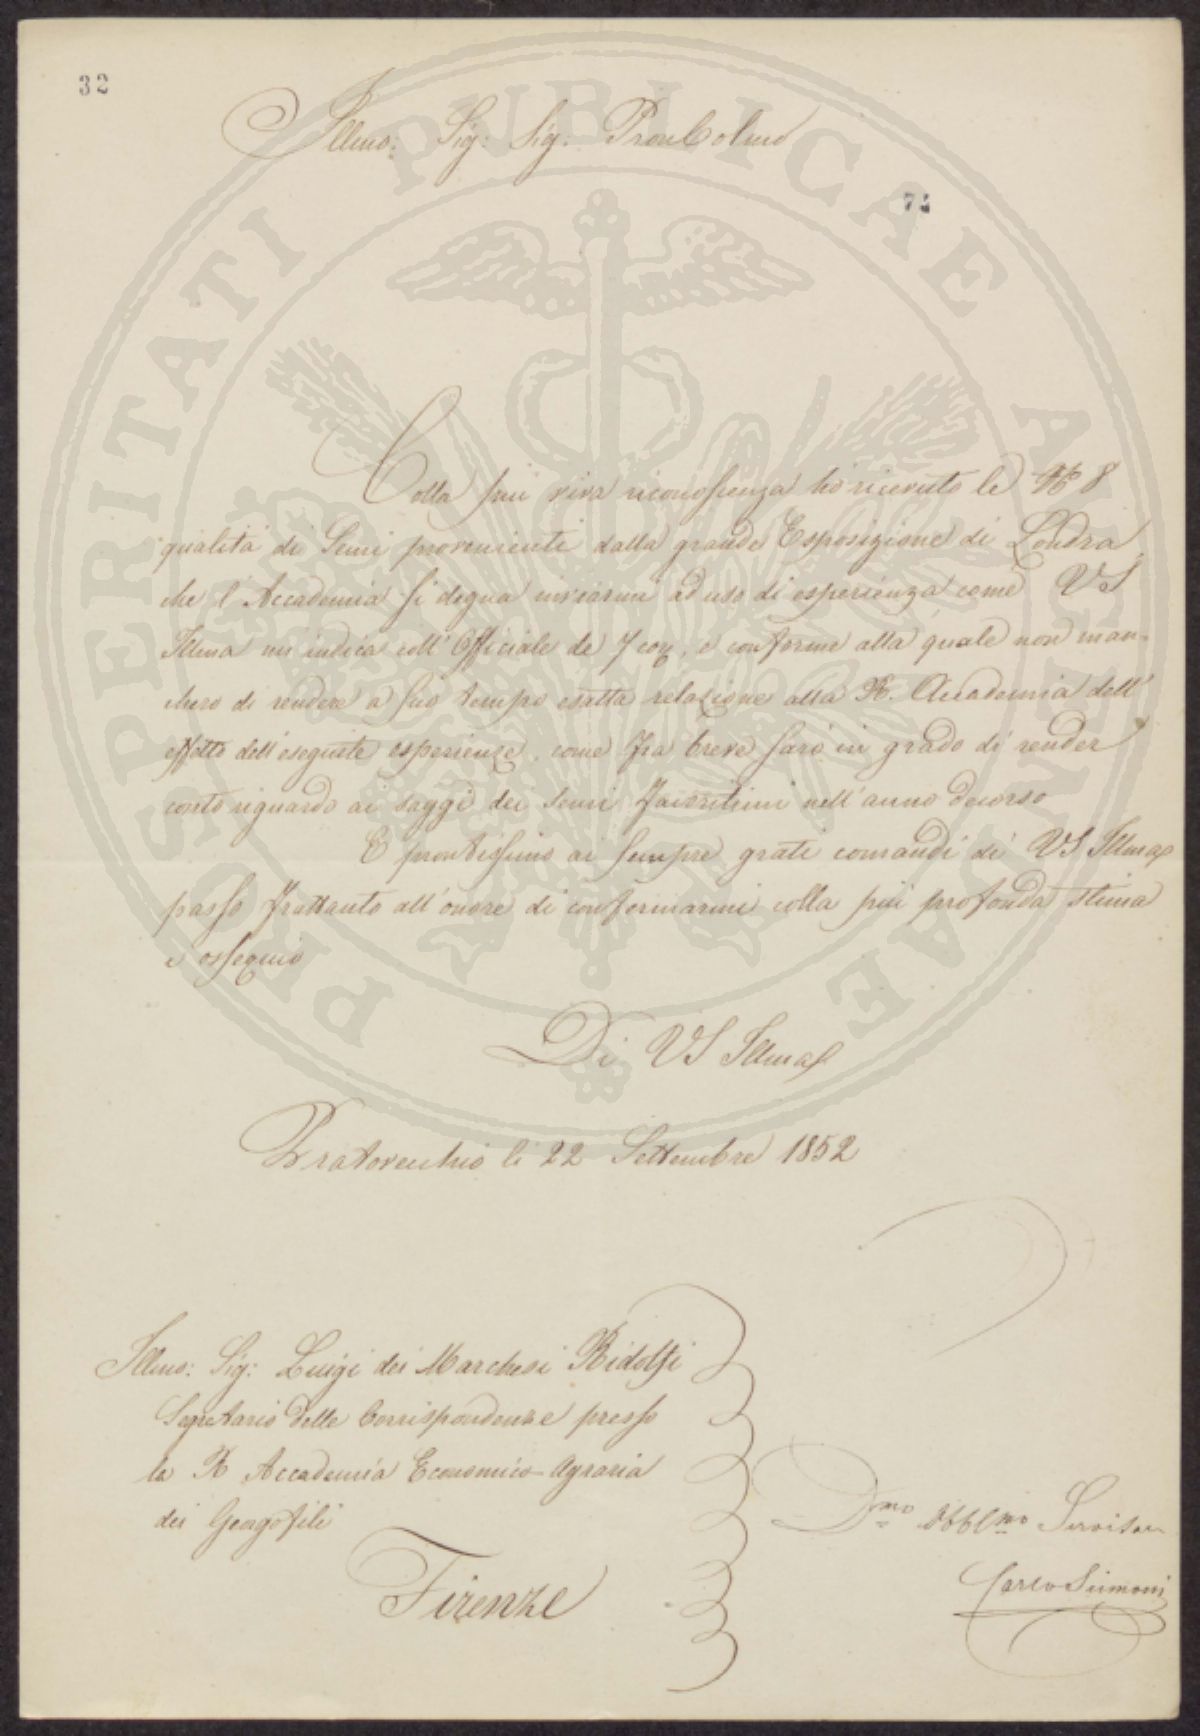 32
Illmo: Sig: Sig: Pron Colmo
74
Colla piu viva riconoscenza ho ricevuto le N° 8
qualità di Semi provenienti dalla grande Esposizione di Londra
che l'Accademia si degna inviarmi ad uso di esperienza come VS
Illma mi indica coll'Officiale de 7 corr. e conforme alla quale non man-
cherò di rendere a suo tempo esatta relazione alla R. Accademia dell'
effetto dell'eseguite esperienze, come fra breve sarò in grado di render
conto riguardo ai saggi dei semi favoritimi nell'anno decorso
E prontissimo ai sempre grati comandi di VS Illma
passo frattanto all'onore di confermarmi colla più profonda stima
e ossequio
Di VS Illma
Pratovecchio li 22 Settembre 1852
Illmo: Sig: Luigi dei Marchesi Ridolfi
Segretario delle Corrispondenze presso
la R Accademia Economico-Agraria
dei Georgofili
Firenze
Dmo Obblmo Servitore
Carlo Siemoni
PROSPERITATI PUBLICAE AUGENDAE